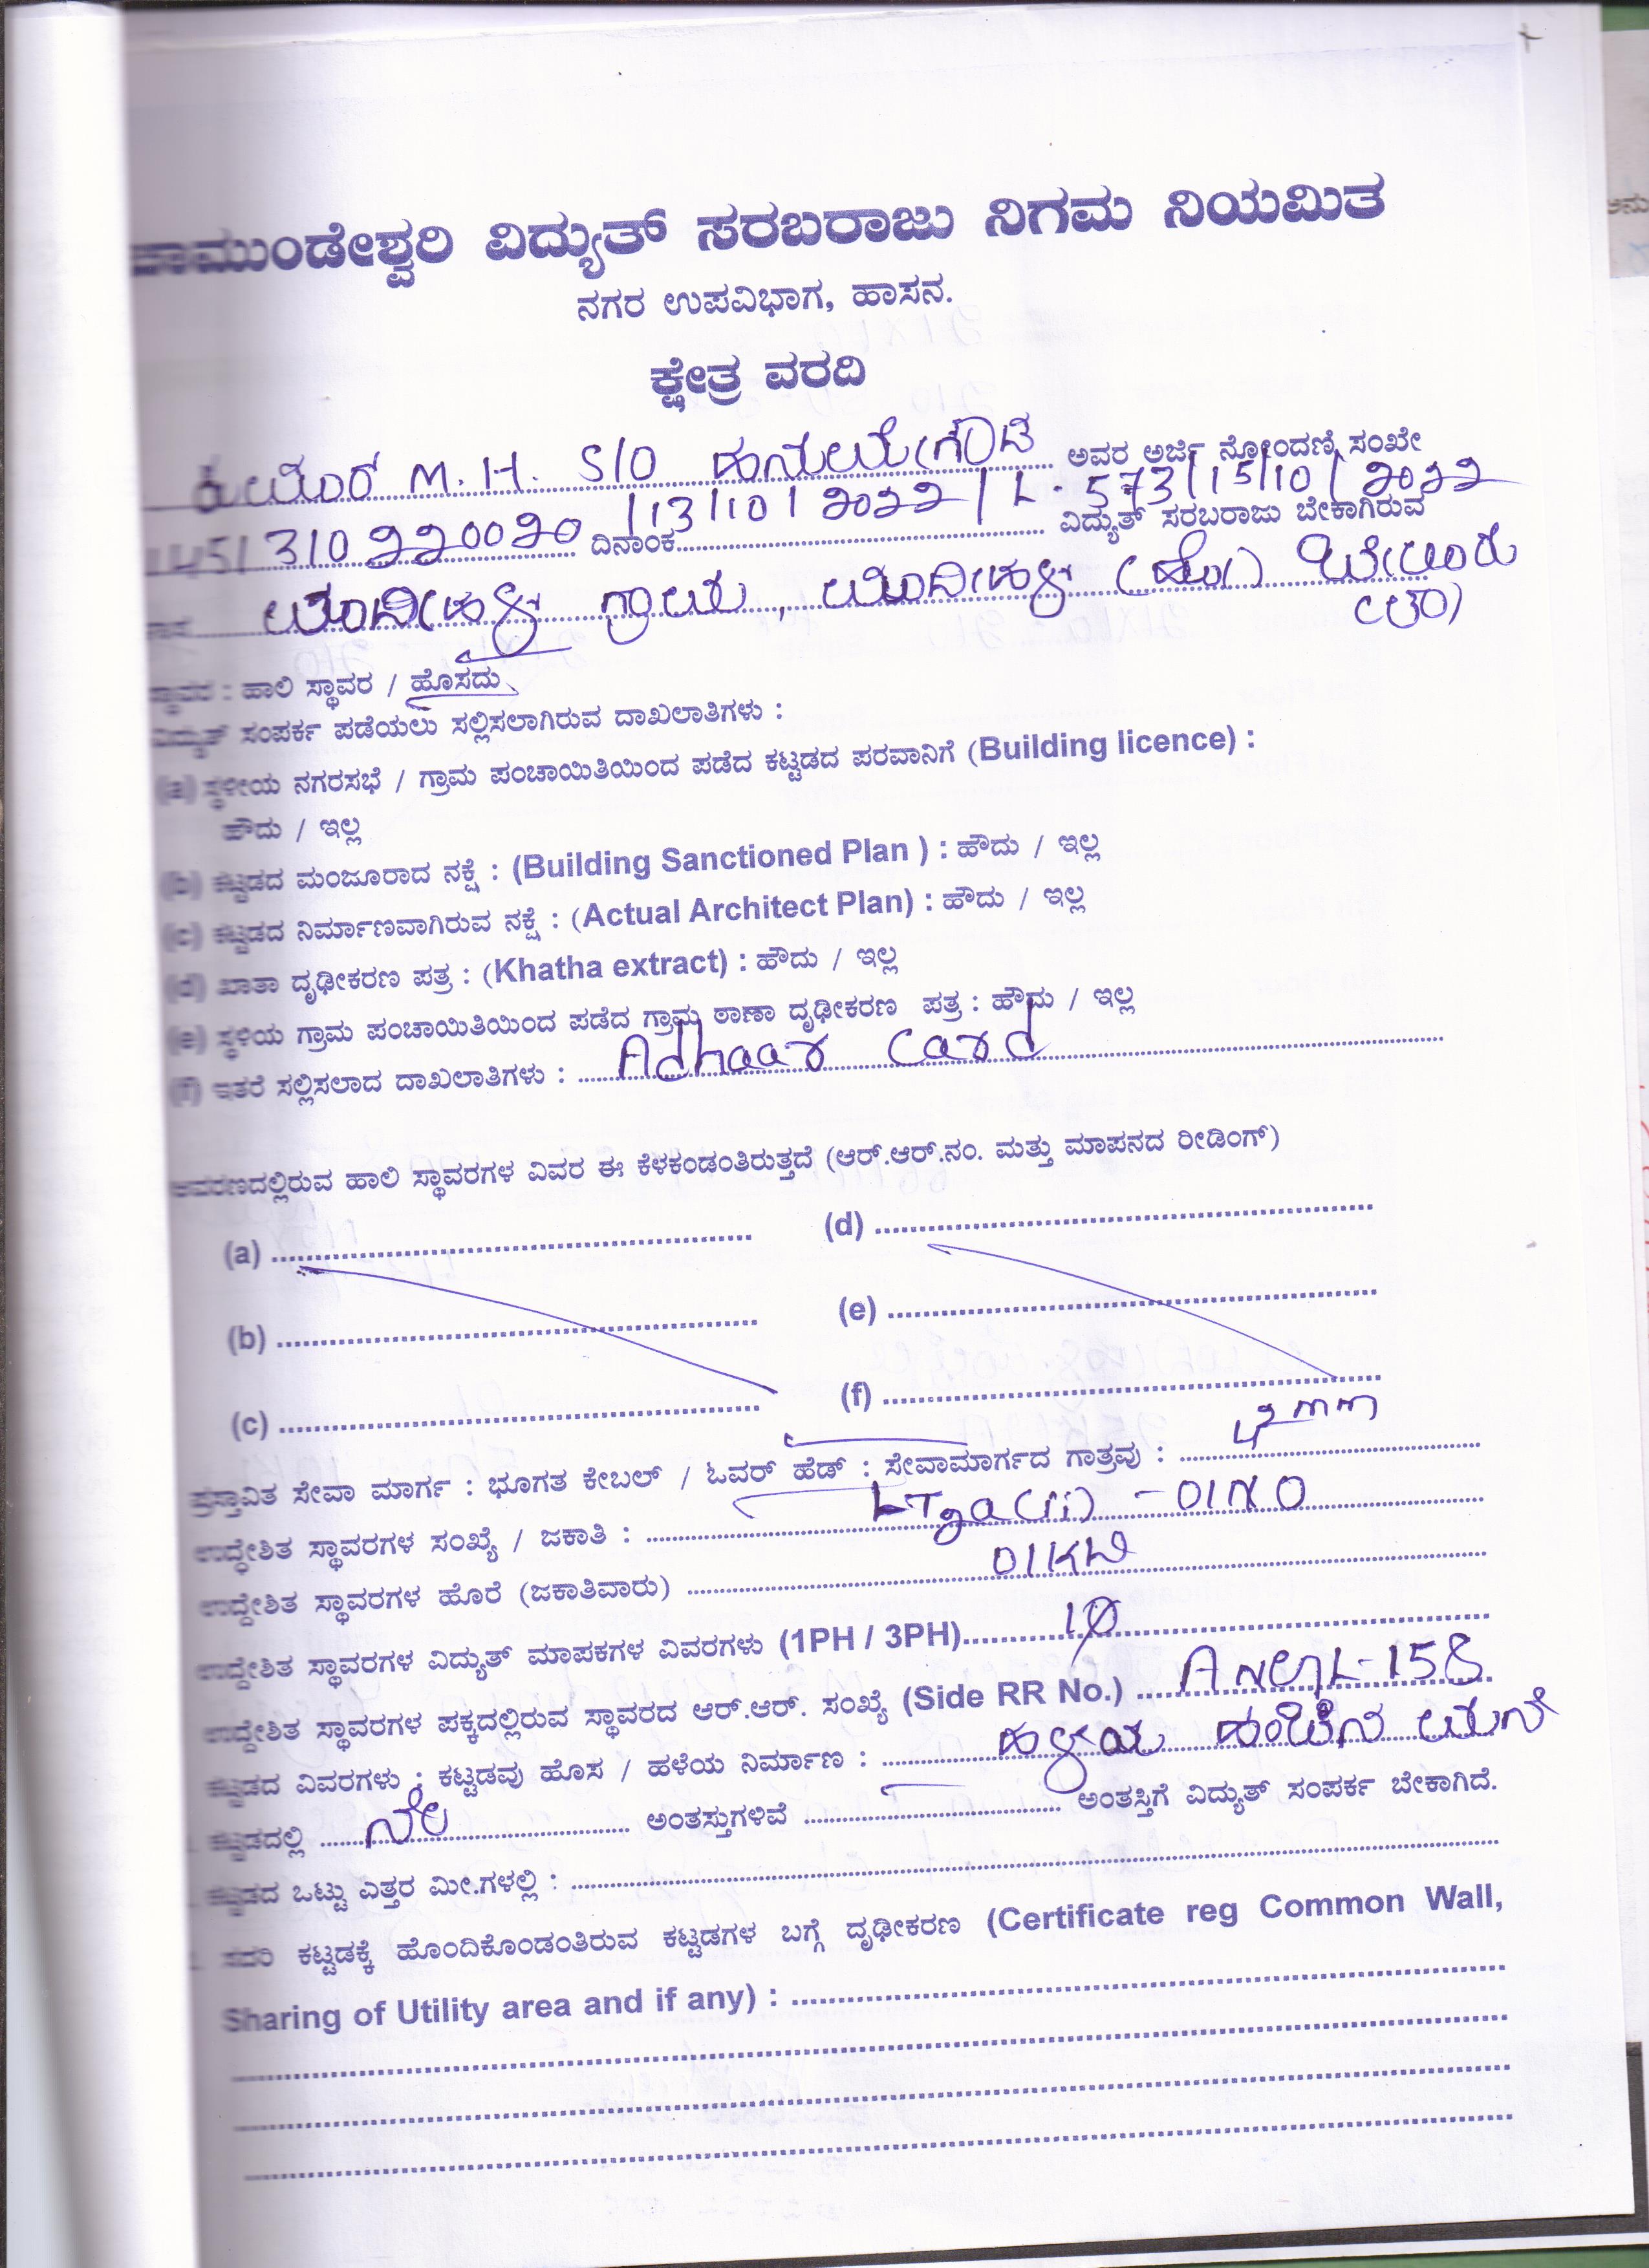 ಚಾಮುಂಡೇಶ್ವರಿ ವಿದ್ಯುತ್ ಸರಬರಾಜು ನಿಗಮ ನಿಯಮಿತ
ನಗರ ಉಪವಿಭಾಗ, ಹಾಸನ.
ಕ್ಷೇತ್ರ ವರದಿ
M.H. S/O ಅವರ ಅರ್ಜಿ ನೋಂದಣಿ ಸಂಖೇ
145/310220020 ದಿನಾಂಕ /13/10/2022/L-573/15/10/2022 ವಿದ್ಯುತ್ ಸರಬರಾಜು ಬೇಕಾಗಿರುವ
ಗ್ರಾಮ, (ಹೋ) ಬೇಲೂರು
(ತಾ)
ಸ್ಥಾವರ : ಹಾಲಿ ಸ್ಥಾವರ / ಹೊಸದು
ವಿದ್ಯುತ್ ಸಂಪರ್ಕ ಪಡೆಯಲು ಸಲ್ಲಿಸಲಾಗಿರುವ ದಾಖಲಾತಿಗಳು :
(a) ಸ್ಥಳೀಯ ನಗರಸಭೆ / ಗ್ರಾಮ ಪಂಚಾಯಿತಿಯಿಂದ ಪಡೆದ ಕಟ್ಟಡದ ಪರವಾನಿಗೆ (Building licence) :
ಹೌದು / ಇಲ್ಲ
(b) ಕಟ್ಟಡದ ಮಂಜೂರಾದ ನಕ್ಷೆ : (Building Sanctioned Plan ) : ಹೌದು / ಇಲ್ಲ
(c) ಕಟ್ಟಡದ ನಿರ್ಮಾಣವಾಗಿರುವ ನಕ್ಷೆ : (Actual Architect Plan) : ಹೌದು / ಇಲ್ಲ
(d) ಖಾತಾ ದೃಢೀಕರಣ ಪತ್ರ : (Khatha extract) : ಹೌದು / ಇಲ್ಲ
(e) ಸ್ಥಳಿಯ ಗ್ರಾಮ ಪಂಚಾಯಿತಿಯಿಂದ ಪಡೆದ ಗ್ರಾಮ ಠಾಣಾ ದೃಢೀಕರಣ ಪತ್ರ : ಹೌದು / ಇಲ್ಲ
(f) ಇತರೆ ಸಲ್ಲಿಸಲಾದ ದಾಖಲಾತಿಗಳು : Adhaar card
ಆವರಣದಲ್ಲಿರುವ ಹಾಲಿ ಸ್ಥಾವರಗಳ ವಿವರ ಈ ಕೆಳಕಂಡಂತಿರುತ್ತದೆ (ಆರ್.ಆರ್.ನಂ. ಮತ್ತು ಮಾಪನದ ರೀಡಿಂಗ್)
(a) (d)
(b) (e)
(c) (f)
ಪ್ರಸ್ತಾವಿತ ಸೇವಾ ಮಾರ್ಗ : ಭೂಗತ ಕೇಬಲ್ / ಓವರ್ ಹೆಡ್ : ಸೇವಾಮಾರ್ಗದ ಗಾತ್ರವು :
ಉದ್ದೇಶಿತ ಸ್ಥಾವರಗಳ ಸಂಖ್ಯೆ / ಜಕಾತಿ : LT2a(ii) - 01NO
ಉದ್ದೇಶಿತ ಸ್ಥಾವರಗಳ ಹೊರೆ (ಜಕಾತಿವಾರು) 01KW
ಉದ್ದೇಶಿತ ಸ್ಥಾವರಗಳ ವಿದ್ಯುತ್ ಮಾಪಕಗಳ ವಿವರಗಳು (1PH / 3PH) 1Ø
ಉದ್ದೇಶಿತ ಸ್ಥಾವರಗಳ ಪಕ್ಕದಲ್ಲಿರುವ ಸ್ಥಾವರದ ಆರ್.ಆರ್. ಸಂಖ್ಯೆ (Side RR No.)
ಕಟ್ಟಡದ ವಿವರಗಳು : ಕಟ್ಟಡವು ಹೊಸ / ಹಳೆಯ ನಿರ್ಮಾಣ : ಹಳೆಯ ಹಂಚಿನ ಮನೆ
ಕಟ್ಟಡದಲ್ಲಿ ನೆಲ ಅಂತಸ್ತುಗಳಿವೆ ಅಂತಸ್ತಿಗೆ ವಿದ್ಯುತ್ ಸಂಪರ್ಕ ಬೇಕಾಗಿದೆ.
ಕಟ್ಟಡದ ಒಟ್ಟು ಎತ್ತರ ಮೀ.ಗಳಲ್ಲಿ :
ಸದರಿ ಕಟ್ಟಡಕ್ಕೆ ಹೊಂದಿಕೊಂಡಂತಿರುವ ಕಟ್ಟಡಗಳ ಬಗ್ಗೆ ದೃಢೀಕರಣ (Certificate reg Common Wall,
Sharing of Utility area and if any) :